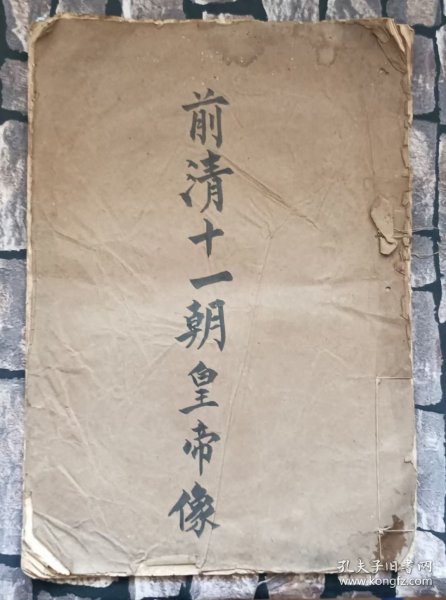 前清十一朝皇帝像
孔夫子旧书网
www.kongfz.com